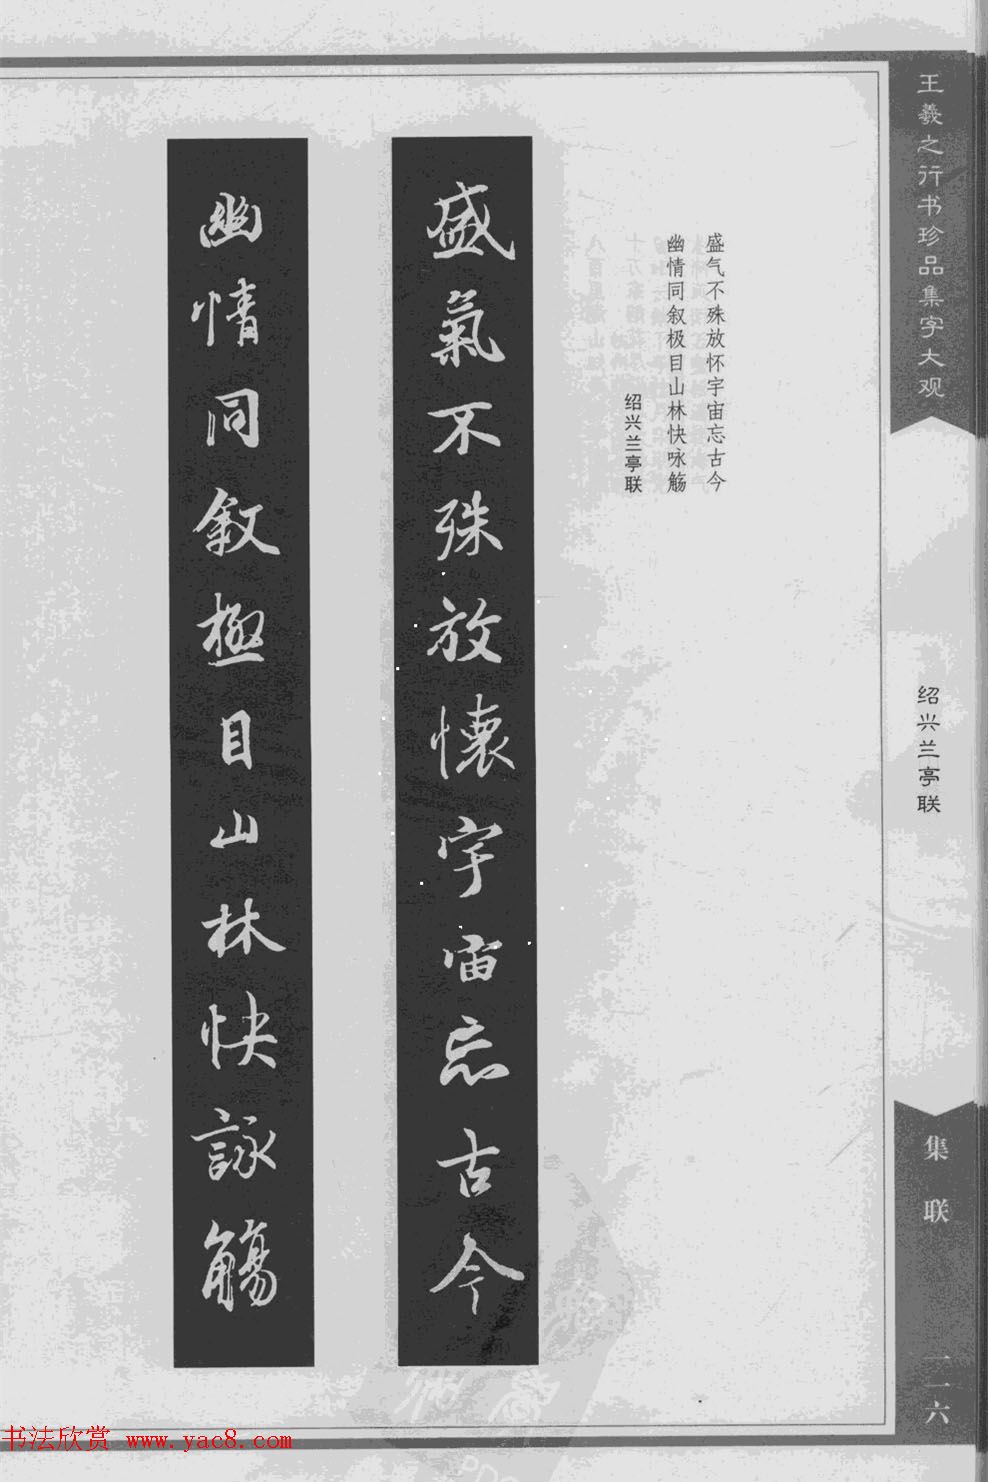 王羲之行书珍品集字大观
绍兴兰亭联
集联
一一六
盛气不殊放怀宇宙忘古今
幽情同叙极目山林快咏觞
绍兴兰亭联
盛氣不殊放懷宇宙忘古今
幽情同敘極目山林快詠觴
书法欣赏 www.yac8.com